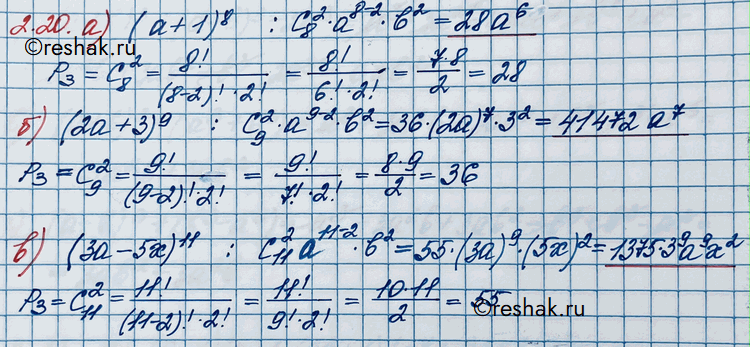 2.20. а) (a+1)⁸ : C₈²·a⁸⁻²·b² = 28a⁶
©reshak.ru
P₃ = C₈² = 8!/((8-2)!·2!) = 8!/(6!·2!) = 7·8/2 = 28
б) (2a+3)⁹ : C₉²·a⁹⁻²·b² = 36·(2a)⁷·3² = 41472 a⁷
P₃ = C₉² = 9!/((9-2)!·2!) = 9!/(7!·2!) = 8·9/2 = 36
в) (3a-5x)¹¹ : C₁₁² a¹¹⁻²·b² = 55·(3a)⁹·(5x)² = 1375·3⁹a⁹x²
P₃ = C₁₁² = 11!/((11-2)!·2!) = 11!/(9!·2!) = 10·11/2 = 55
©reshak.ru